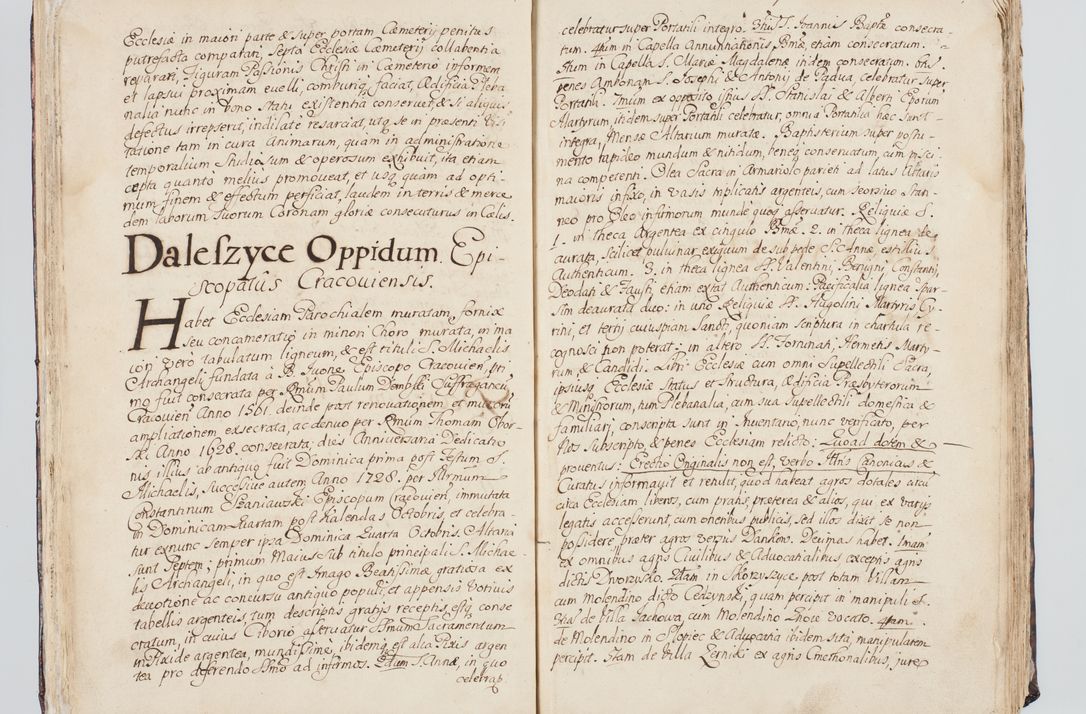 Ecclesiæ in maiori parte & super portam Cæmeterij penitus
putrefacta comparari, Septa Ecclesiæ Cæmeterij collabentia
reparari, Figuram Passionis Christi in Cæmeterio informem
et lapsui proximam evelli, comburi faciat, Ædificia Pleba
nalia nunc in bono statu existentia conservet, & si aliquis
defectus irrepserit, indilate resarciat, utq se in præsenti Visi
tatione tam in cura Animarum, quam in administratione
temporalium studiosum & operosum exhibuit, ita etiam
cæpta quanto melius promoveat, et usq quam ad opti
mum finem & effectum perficiat, laudem in terris & merce
dem laborum suorum Coronam gloriæ consecuturus in Cælis.
Daleszyce Oppidum Epi-
scopatus Cracoviensis.
Habet Ecclesiam Parochialem muratam, fornice
seu concameratio in minori Choro murata, in ma
iori vero tabulatum ligneum, & est tituli S. Michaelis
Archangeli fundata à B. Ivone Episcopo Cracovien, pri
mo fuit consecrata per Rmum Paulum Dembski Suffraganeum
Cracovien Anno 1561. deinde post renovationem et murorum
ampliationem, exsecrata, ac denuo per Rmum Thomam Obor-
ski Anno 1628. consecrata, dies Anniversaria Dedicatio
nis illius ab antiquo fuit Dominica prima post Festum S.
Michaelis, successive autem Anno 1728. per Illrmum
Constantinum Szaniawski Episcopum Cracovien, immutata
in Dominicam Quartam post Kalendas Octobris, et celebra-
tur exnunc semper ipsa Dominica Quarta Octobris. Altaria
sunt Septem: primum Maius sub titulo principali S. Michae
lis Archangeli, in quo est Imago Beatissimæ gratiosa ex
devotione ac concursu antiquo populi, et appensis votivis
tabellis argenteis, tum descriptis gratijs receptis, estq conse
cratum, in cuius Ciborio asservatur Ssmum Sacramentum
in Pixide argentea, mundissime, ibidemq est alia Pixis argen
tea pro deferendo Ssmo ad infirmos. 2dum S. Annæ, in quo
celebrap
celebratur super Portatili integro. 3tium S. Joannis Baptæ consecra-
tum. 4tum in Capella Annunciationis Bmæ, etiam consecratum.
5tum in Capella S. Mariæ Magdalenæ itidem consecratum. 6tus
penes Ambonam S. Josephi & Antonij de Padua, celebratur super
Portatili. 7mum ex opposito istius SS. Stanislai & Alberti Eporum
Martyrum, itidem super Portatili celebratur, omnia Portatilia hæc sunt
integra, Mensæ Altarium muratæ. Baptisterium super postu-
mento lapideo mundum & nitidum, beneq conservatum, cum pisci-
na competenti. Olea Sacra in Armariolo parieti ad latus Altaris
maioris infixo, in vasis implicatis argenteis, cum seorsivo stan-
neo pro Oleo infirmorum munde quoq asservatur. Reliquiæ S.
1. in theca Argentea ex cingulo Bmæ. 2. in theca lignea de
aurata, scilicet pulvinar exiguum de sub pede S. Annæ, est illius
Authenticum. 3. in theca lignea SS. Valentini, Benigni Constantij,
Deodati & Fausti etiam extat Authenticum: Pacificalia lignea spar-
sim deaurata duo: in uno Reliquiæ SS. Hugolini Martyris Cy-
rini, et tertij cuiuspiam Sancti, quoniam scriptura in chartula re-
cognosci non poterat: in altero SS. Fortunati, Hermetis Marty-
rum & Candidi. Libri Ecclesiæ cum omni Supellectili Sacra,
ipsiusq Ecclesiæ Status et Structura, ædificia Presbyterorum
& Ministrorum, tum Plebanalia, cum sua supellectili domestica &
familiari, conscripta sunt in Inventario, nunc verificato, per
Nos subscripto, & penes Ecclesiam relicto: Quoad dotem &
proventus: Erectio Originalis non est, verbo Illris Canonicus &
Curatus informavit et renuit, quod habeat agros dotales circu
circa Ecclesiam liberos, cum pratis, præterea & alios, qui ex varijs
legatis accesserunt, cum oneribus publicis, sed illos dixit se non
possidere præter agros versus Dankow. Decimas habet. 1mam
ex omnibus agris Civilibus & Advocatialibus exceptis agris
dictis Dworzysko. 2dam in Skorzyszyce post totam Villam
cum Molendino dicto Cedzynski, quam percipit in manipuli. 3.
tia de Villa Suchowa, cum Molendino Znoie vocato. 4tam
de Molendino in Słopiec & Advocatia ibidem sita, manipularem
percipit. 5tam de Villa Zerniki ex agris Cmethonalibus, jure